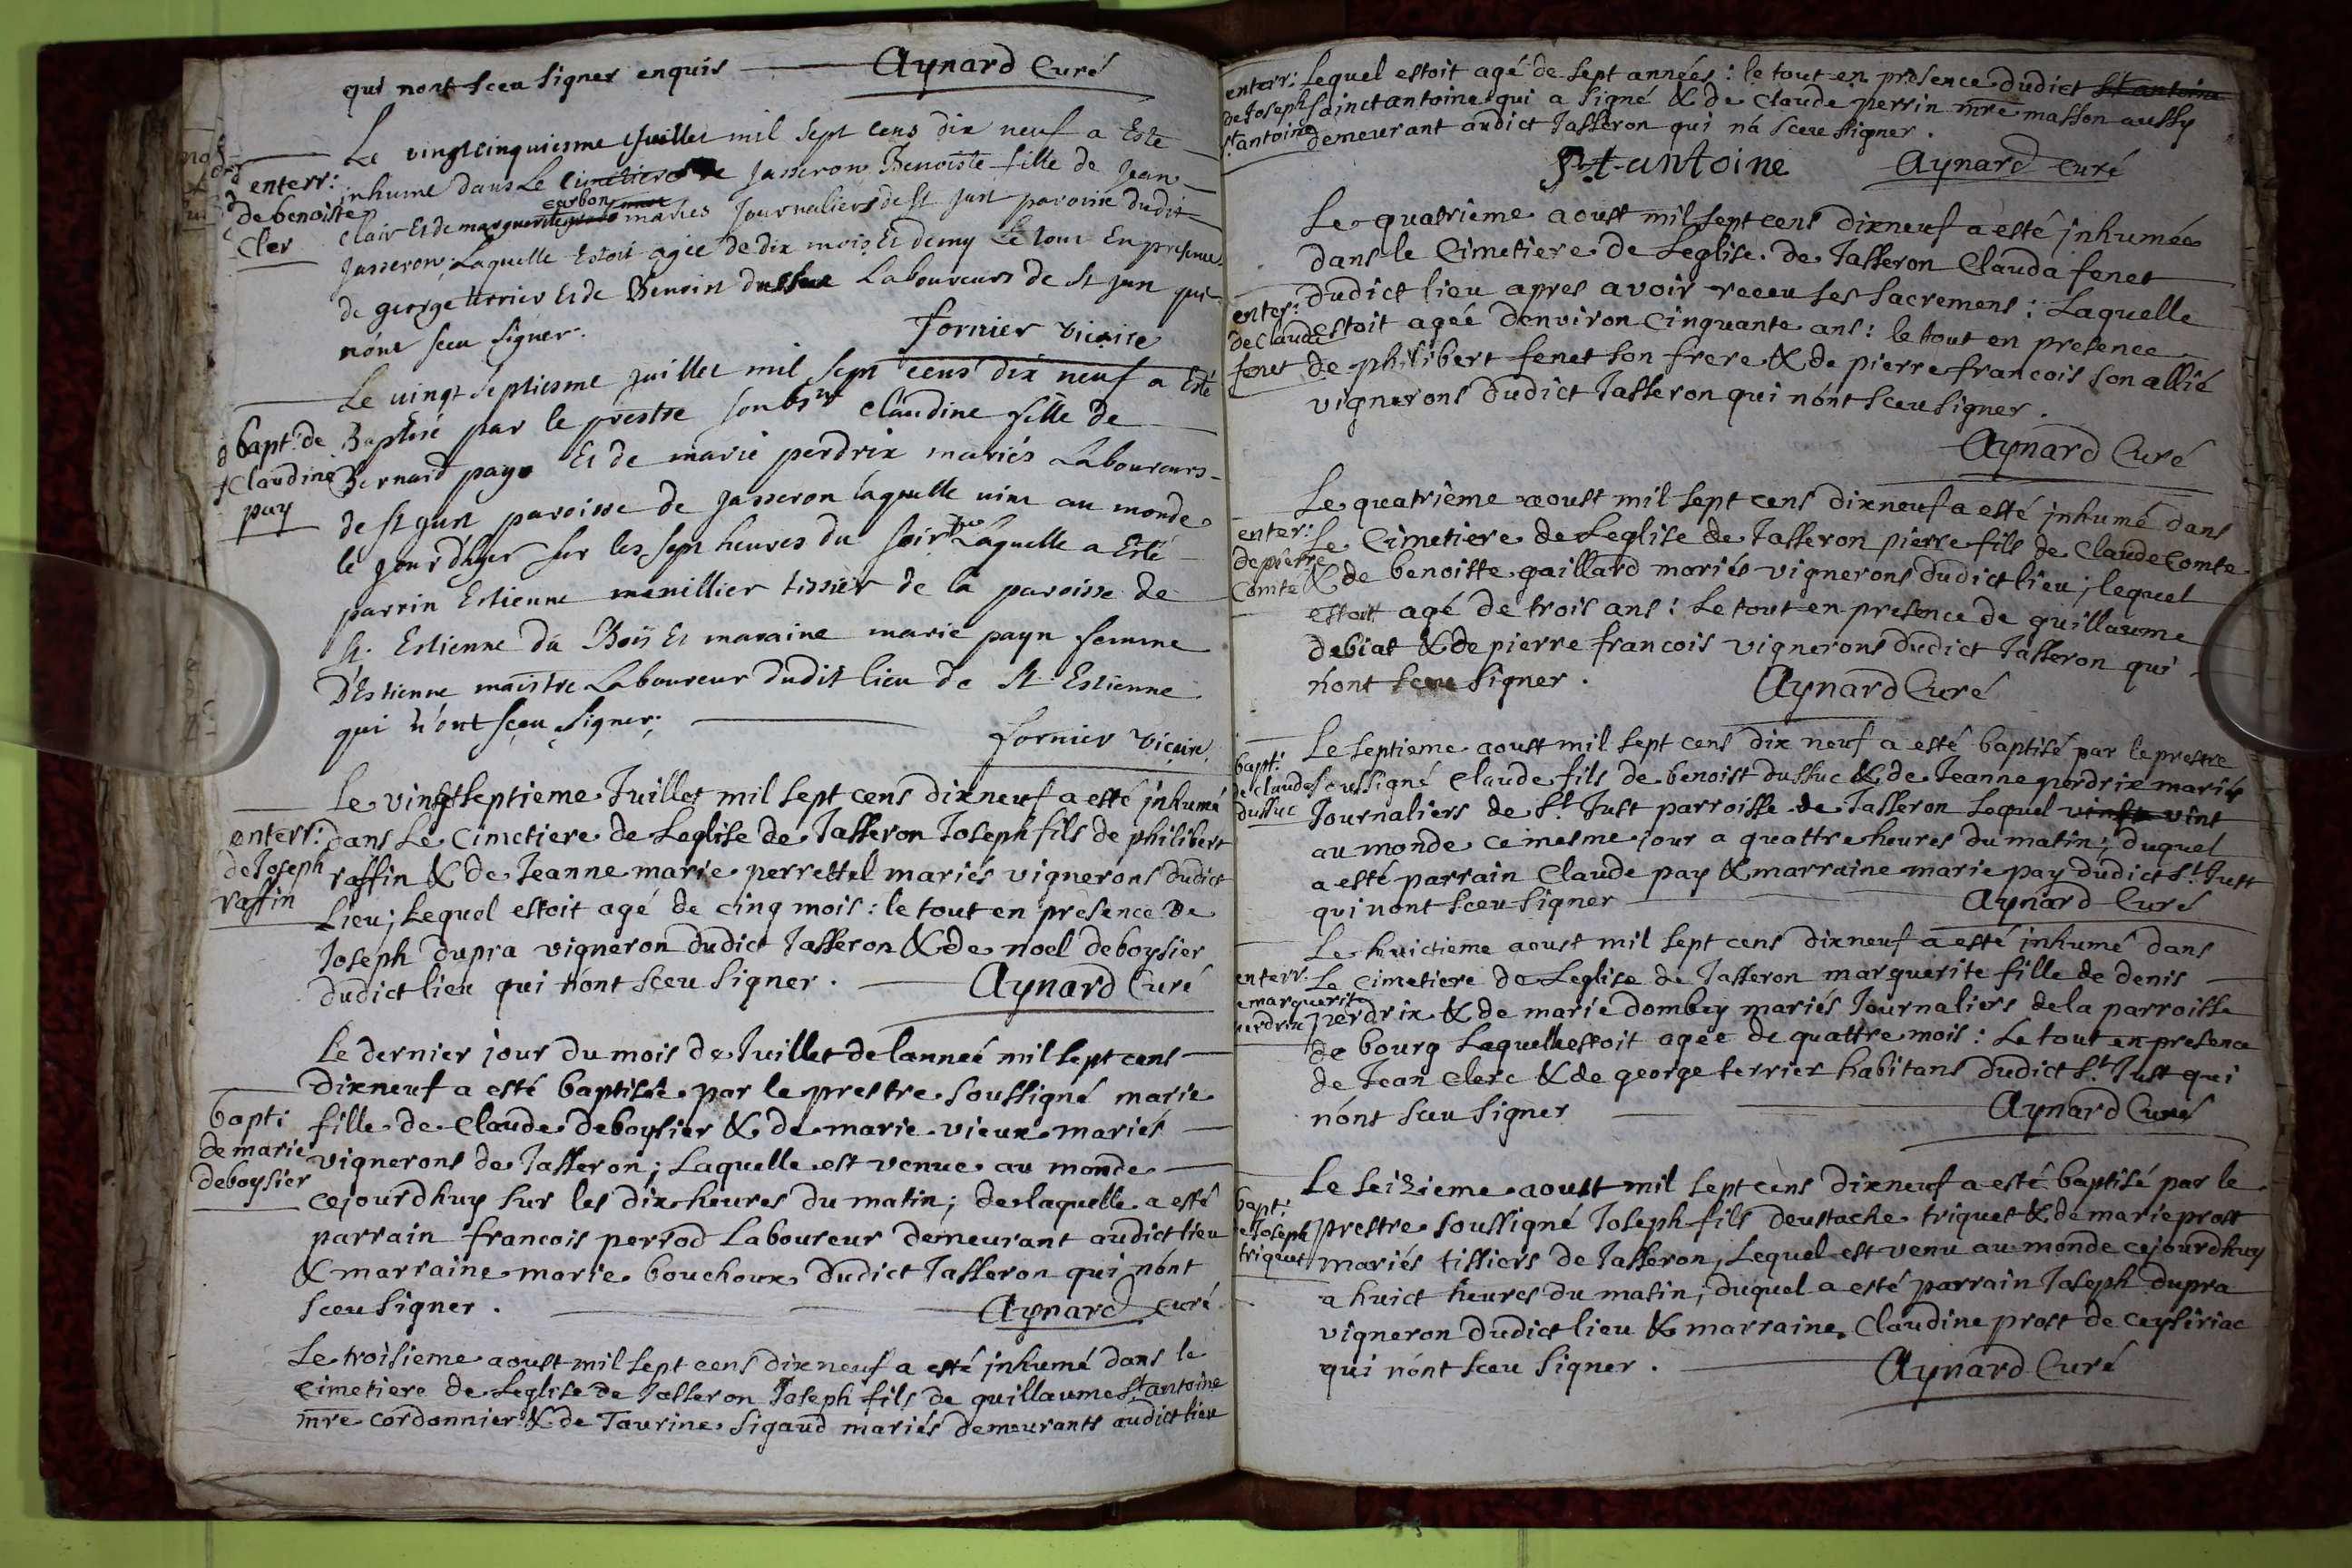 qui nont sceu signer enquis Aynard Curé
Le vingtcinquiesme Juillet mil sept cens dix neuf a Esté
enterr:
de benoiste
Cler
inhume dans Le Cimetiere de Jasseron Benoiste fille de Jean
Clair Et de marguerite carbon mariés Journaliers de St Just paroisse dudit
Jasseron; Laquelle Estoit agée de dix mois Et demy Le tout En presence
de george terrier Et de Benoist dussuc Laboureurs de St Just qui
nónt sceu signer.
fornier vicaire
Le vingt septiesme juillet mil sept cens dix neuf a Esté
bapt. de
Claudine
pay
Baptisé par le prestre soubsné Claudine fille de
Bernard paye Et de marie perdrix mariés Laboureurs
de St Just paroisse de Jasseron laquelle vint au monde
le jour d'hyer sur les sept heures du soir Laquelle a Esté
parrin Estienne manillier tissier de la paroisse de
St. Estienne du Bois Et maraine marie payn femme
D'Estienne maistre Laboureur dudit lieu de St Estienne
qui n'ont sceu signer;
fornier vicaire
Le vingtseptieme Juillet mil sept cens dixneuf a esté inhumé
enterr:
de Joseph
raffin
dans Le Cimetiere de Leglise de Jasseron Joseph fils de philibert
raffin & de Jeanne marie perrettel mariés vignerons dudict
Lieu; Lequel estoit agé de cinq mois: le tout en presence de
Joseph dupra vigneron dudict Jasseron & de noel deboysier
dudict lieu qui nónt sceu signer. Aynard Curé
Le dernier jour du mois de Juillet de lanneé mil sept cens
dixneuf a esté baptisée par le prestre soussigné marie
bapt:
de marie
deboysier
fille de Claude deboysier & de marie vieux mariés
vignerons de Jasseron; Laquelle est venue au monde
cejourdhuy sur les dix heures du matin; de laquelle a esté
parrain francois perrod Laboureur demeurant audict lieu
& marraine marie bouchoux dudict Jasseron qui nónt
sceu signer. Aynard curé
Le troisieme aoust mil sept cens dixneuf a esté inhumé dans le
Cimetiere de Leglise de Jasseron Joseph fils de guillaume St antoine
mre cordonnier & de Taurine Sigaud mariés demeurants audict lieu
enterr:
de Joseph
St antoine
Lequel estoit agé de sept années: le tout en presence dudict St antoine
sainct antoine qui a signé & de Claude perrin mre masson aussy
demeurant audict Jasseron qui ná sceu signer.
St antoine Aynard curé
Le quatrième aoust mil sept cens dixneuf a esté inhumée
dans le Cimetiere de Leglise de Jasseron Clauda fenet
enter:
de Clauda
fenet
dudict lieu apres avoir receu ses sacremens: Laquelle
estoit ageé denviron Cinquante ans: le tout en presence
de philibert fenet son frere & de pierre francois son allié
vignerons dudict Jasseron qui nónt sceu signer.
Aynard Curé
Le quatrième aoust mil sept cens dixneuf a esté inhumé dans
enter:
de pierre
Comte
Le Cimetiere de Leglise de Jasseron pierre fils de Claude Comte
& de benoitte gaillard mariés vignerons dudict lieu; lequel
estoit agé de trois ans: Le tout en presence de guillaume
debiat & de pierre francois vignerons dudict Jasseron qui
nónt sceu signer. Aynard Curé
Le septieme aoust mil sept cens dix neuf a esté baptisé par le prestre
bapt:
de claude
dussuc
soussigné Claude fils de benoist dussuc & de Jeanne perdrix mariés
Journaliers de St Just parroisse de Jasseron Lequel vint
au monde ce mesme jour a quattre heures du matin; duquel
a esté parrain Claude pay & marraine marie pay dudict St Just
qui nont sceu signer Aynard Curé
Le huictieme aoust mil sept cens dixneuf a esté inhumé dans
enterr.
e marguerite
perdrix
Le Cimetiere de Leglise de Jasseron marguerite fille de denis
perdrix & de marie dombey mariés Journaliers de la parroisse
de bourg Laquelle estoit agee de quattre mois: Le tout en presence
de Jean Clerc & de george terrier habitans dudict St Just qui
nónt sceu signer Aynard Curé
Le seizieme aoust mil sept cens dixneuf a esté baptisé par le
bapt:
e Joseph
triquet
prestre soussigné Joseph fils deustache triquet & de marie prost
mariés tissiers de Jasseron, Lequel est venu au monde cejourdhuy
a huict heures du matin; duquel a esté parrain Joseph dupra
vigneron dudict lieu & marraine Claudine prost de ceysiriac
qui nónt sceu signer. Aynard Curé